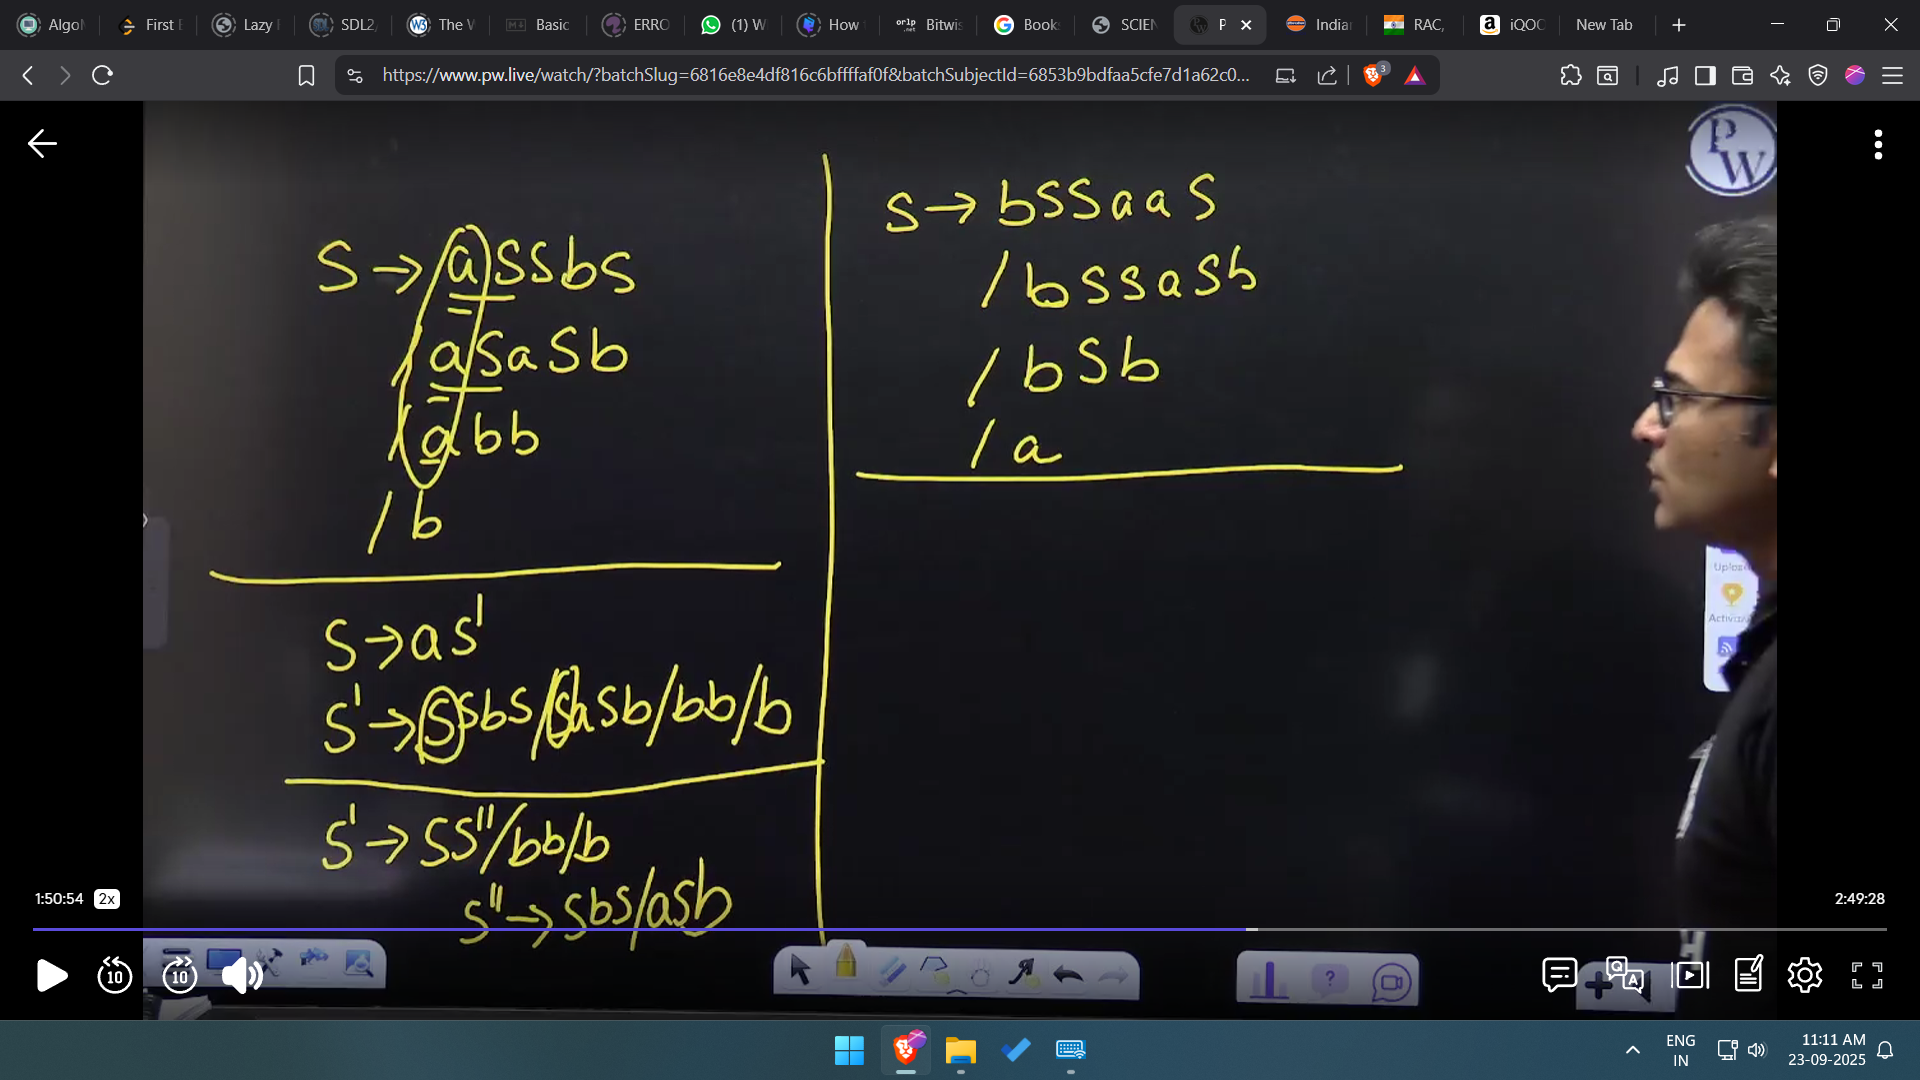 Algo
First E
Lazy
SDL2,
The W
Basic
ERRO
(1) W
How
Bitwis
Book
SCIEN
P
India
RAC,
iQOO
New Tab
https://www.pw.live/watch/?batchSlug=6816e8e4df816c6bffffaf0f&batchSubjectId=6853b9bdfaa5cfe7d1a62c0...
3
S → aSSbS
/ aSaSb
/ abb
/ b
S → aS'
S' → SSbS / SaSb / bb / b
S' → SS'' / bb / b
S'' → SbS / aSb
S → bSSaaS
/ bSSaSb
/ bSb
/ a
PW
1:50:54 2x
2:49:28
10
10
ENG
IN
11:11 AM
23-09-2025